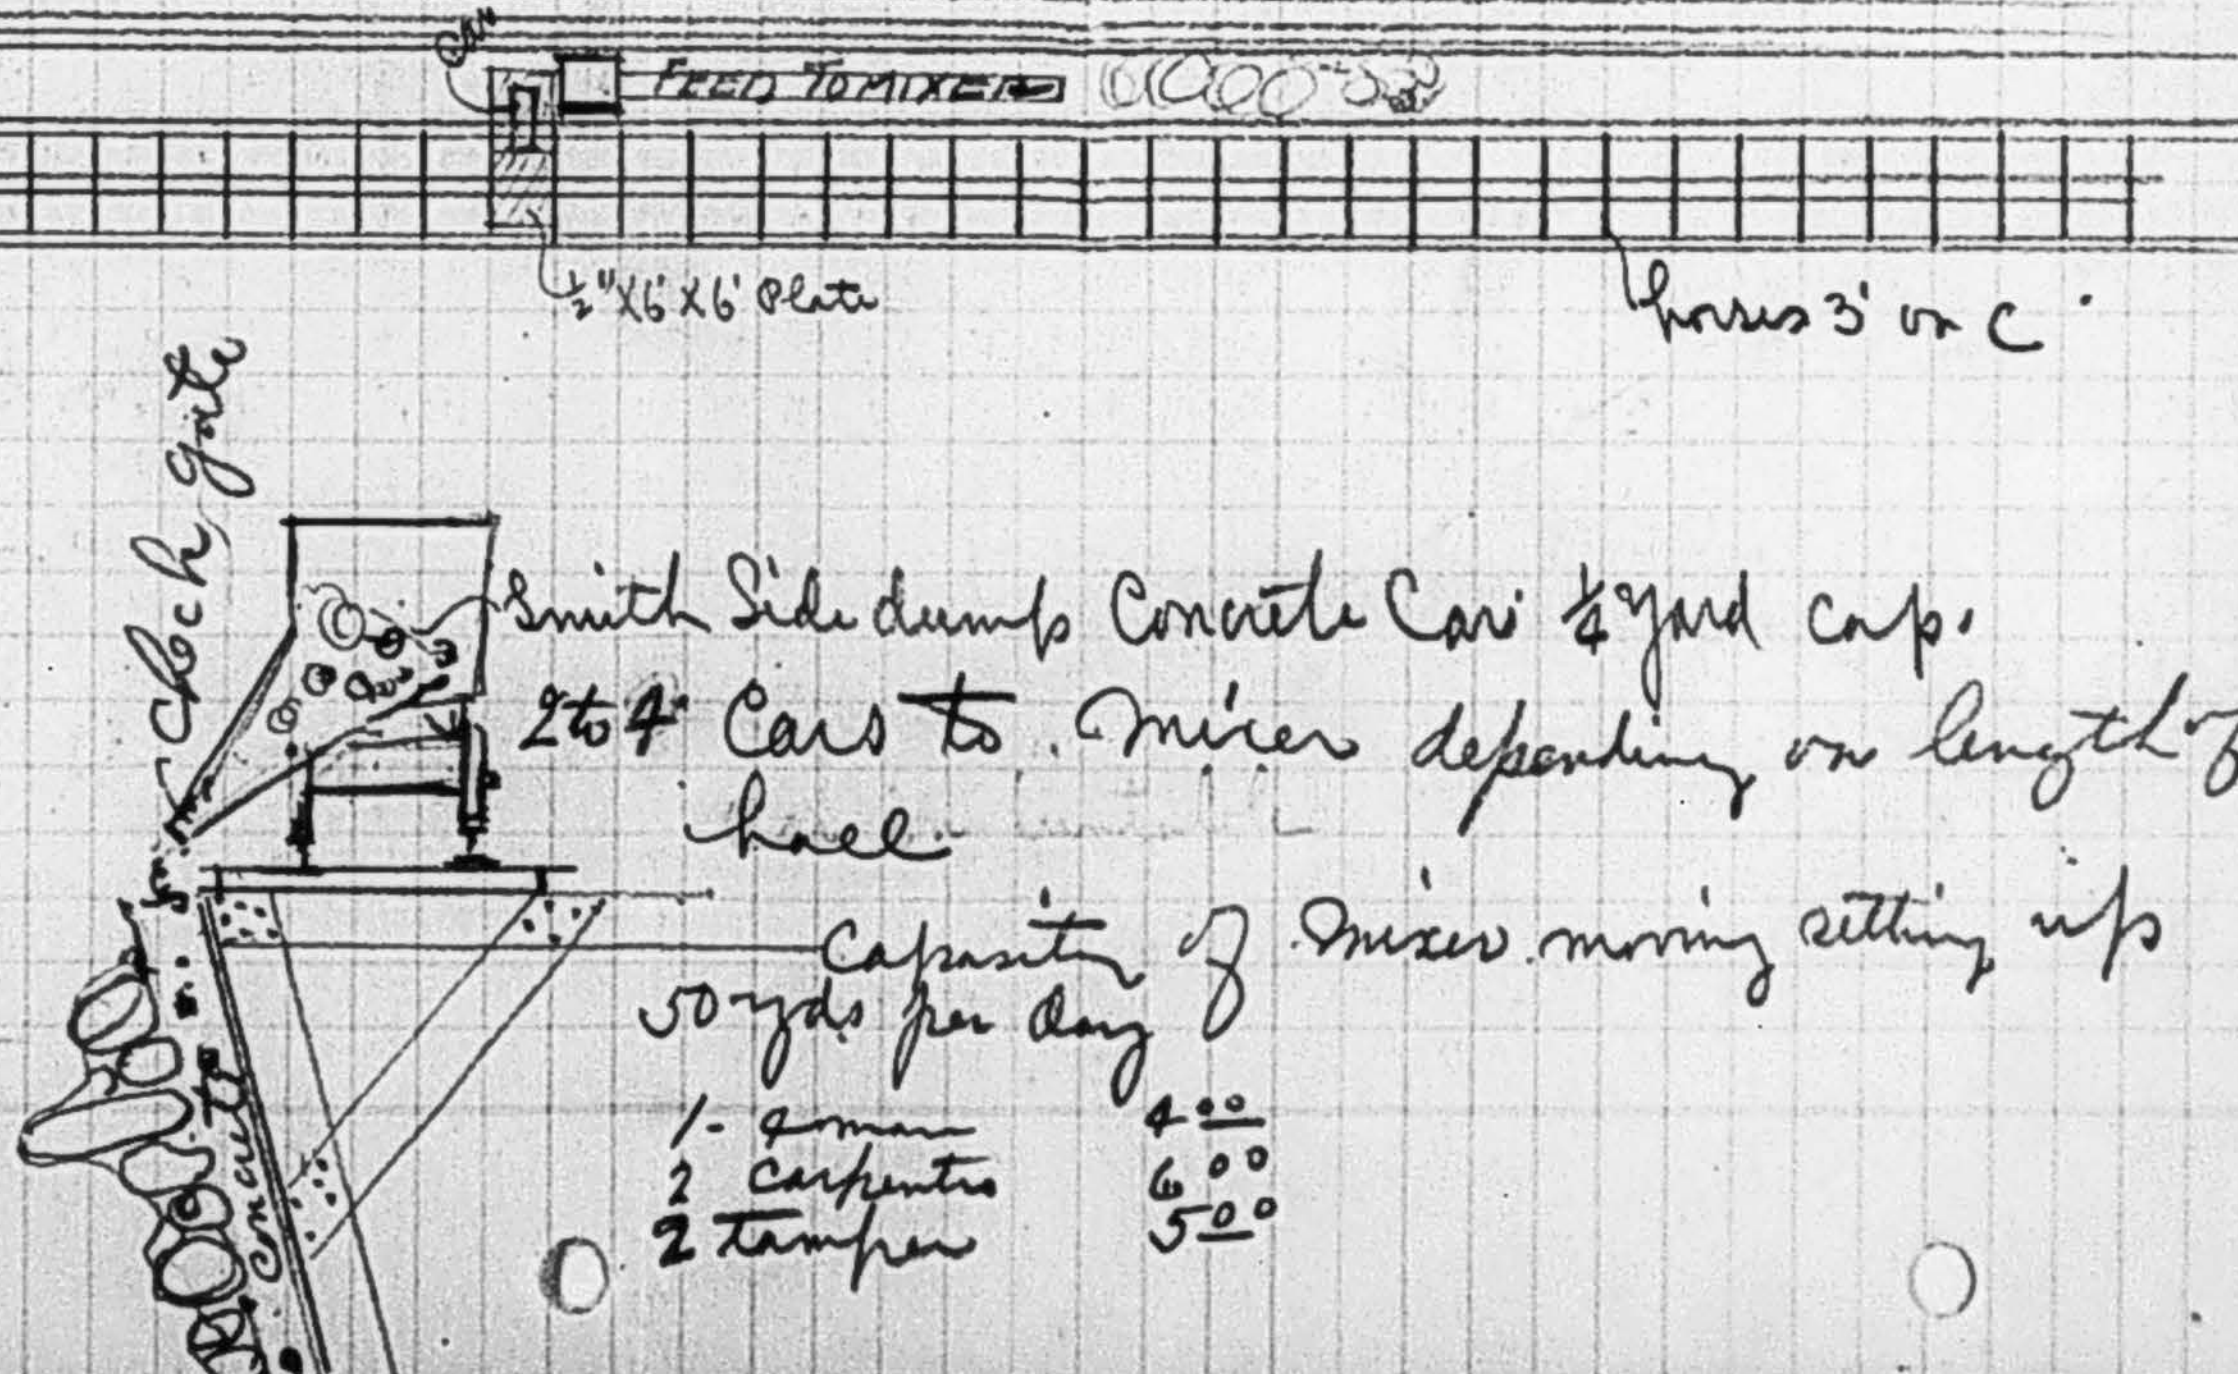 Car
FEED TO MIXER
1/2" X 6' X 6' Plate
horses 3' on C
Check gate
Smith Side dump Concrete Car 1/4 yard cap.
2 to 4 Cars to Mixer depending on length of
haul
Capasity of mixer moving setting up
50 yds per day
1 - 4man 4 00
2 carpentrs 6 00
2 Tamper 5 00
concrete